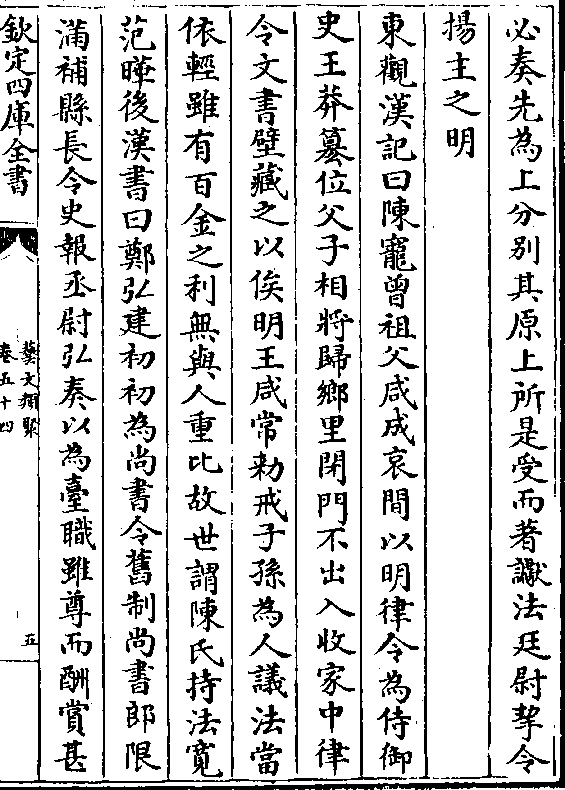 必奏先為上分别其原上所是受而著讞法廷尉挈令
揚主之明
東觀漢記曰陳寵曽祖父咸成哀間以明律令為侍御
史王莽簒位父子相將歸鄉里閉門不出入收家中律
令文書壁藏之以俟明王咸常勑戒子孫為人議法當
依輕雖有百金之利無與人重比故世謂陳氏持法寛
范曄後漢書曰鄭弘建初初為尚書令舊制尚書郎限
滿補縣長令史報丞尉弘奏以為臺職雖尊而酬賞甚
欽定四庫全書
藝文類聚
卷五十四
五